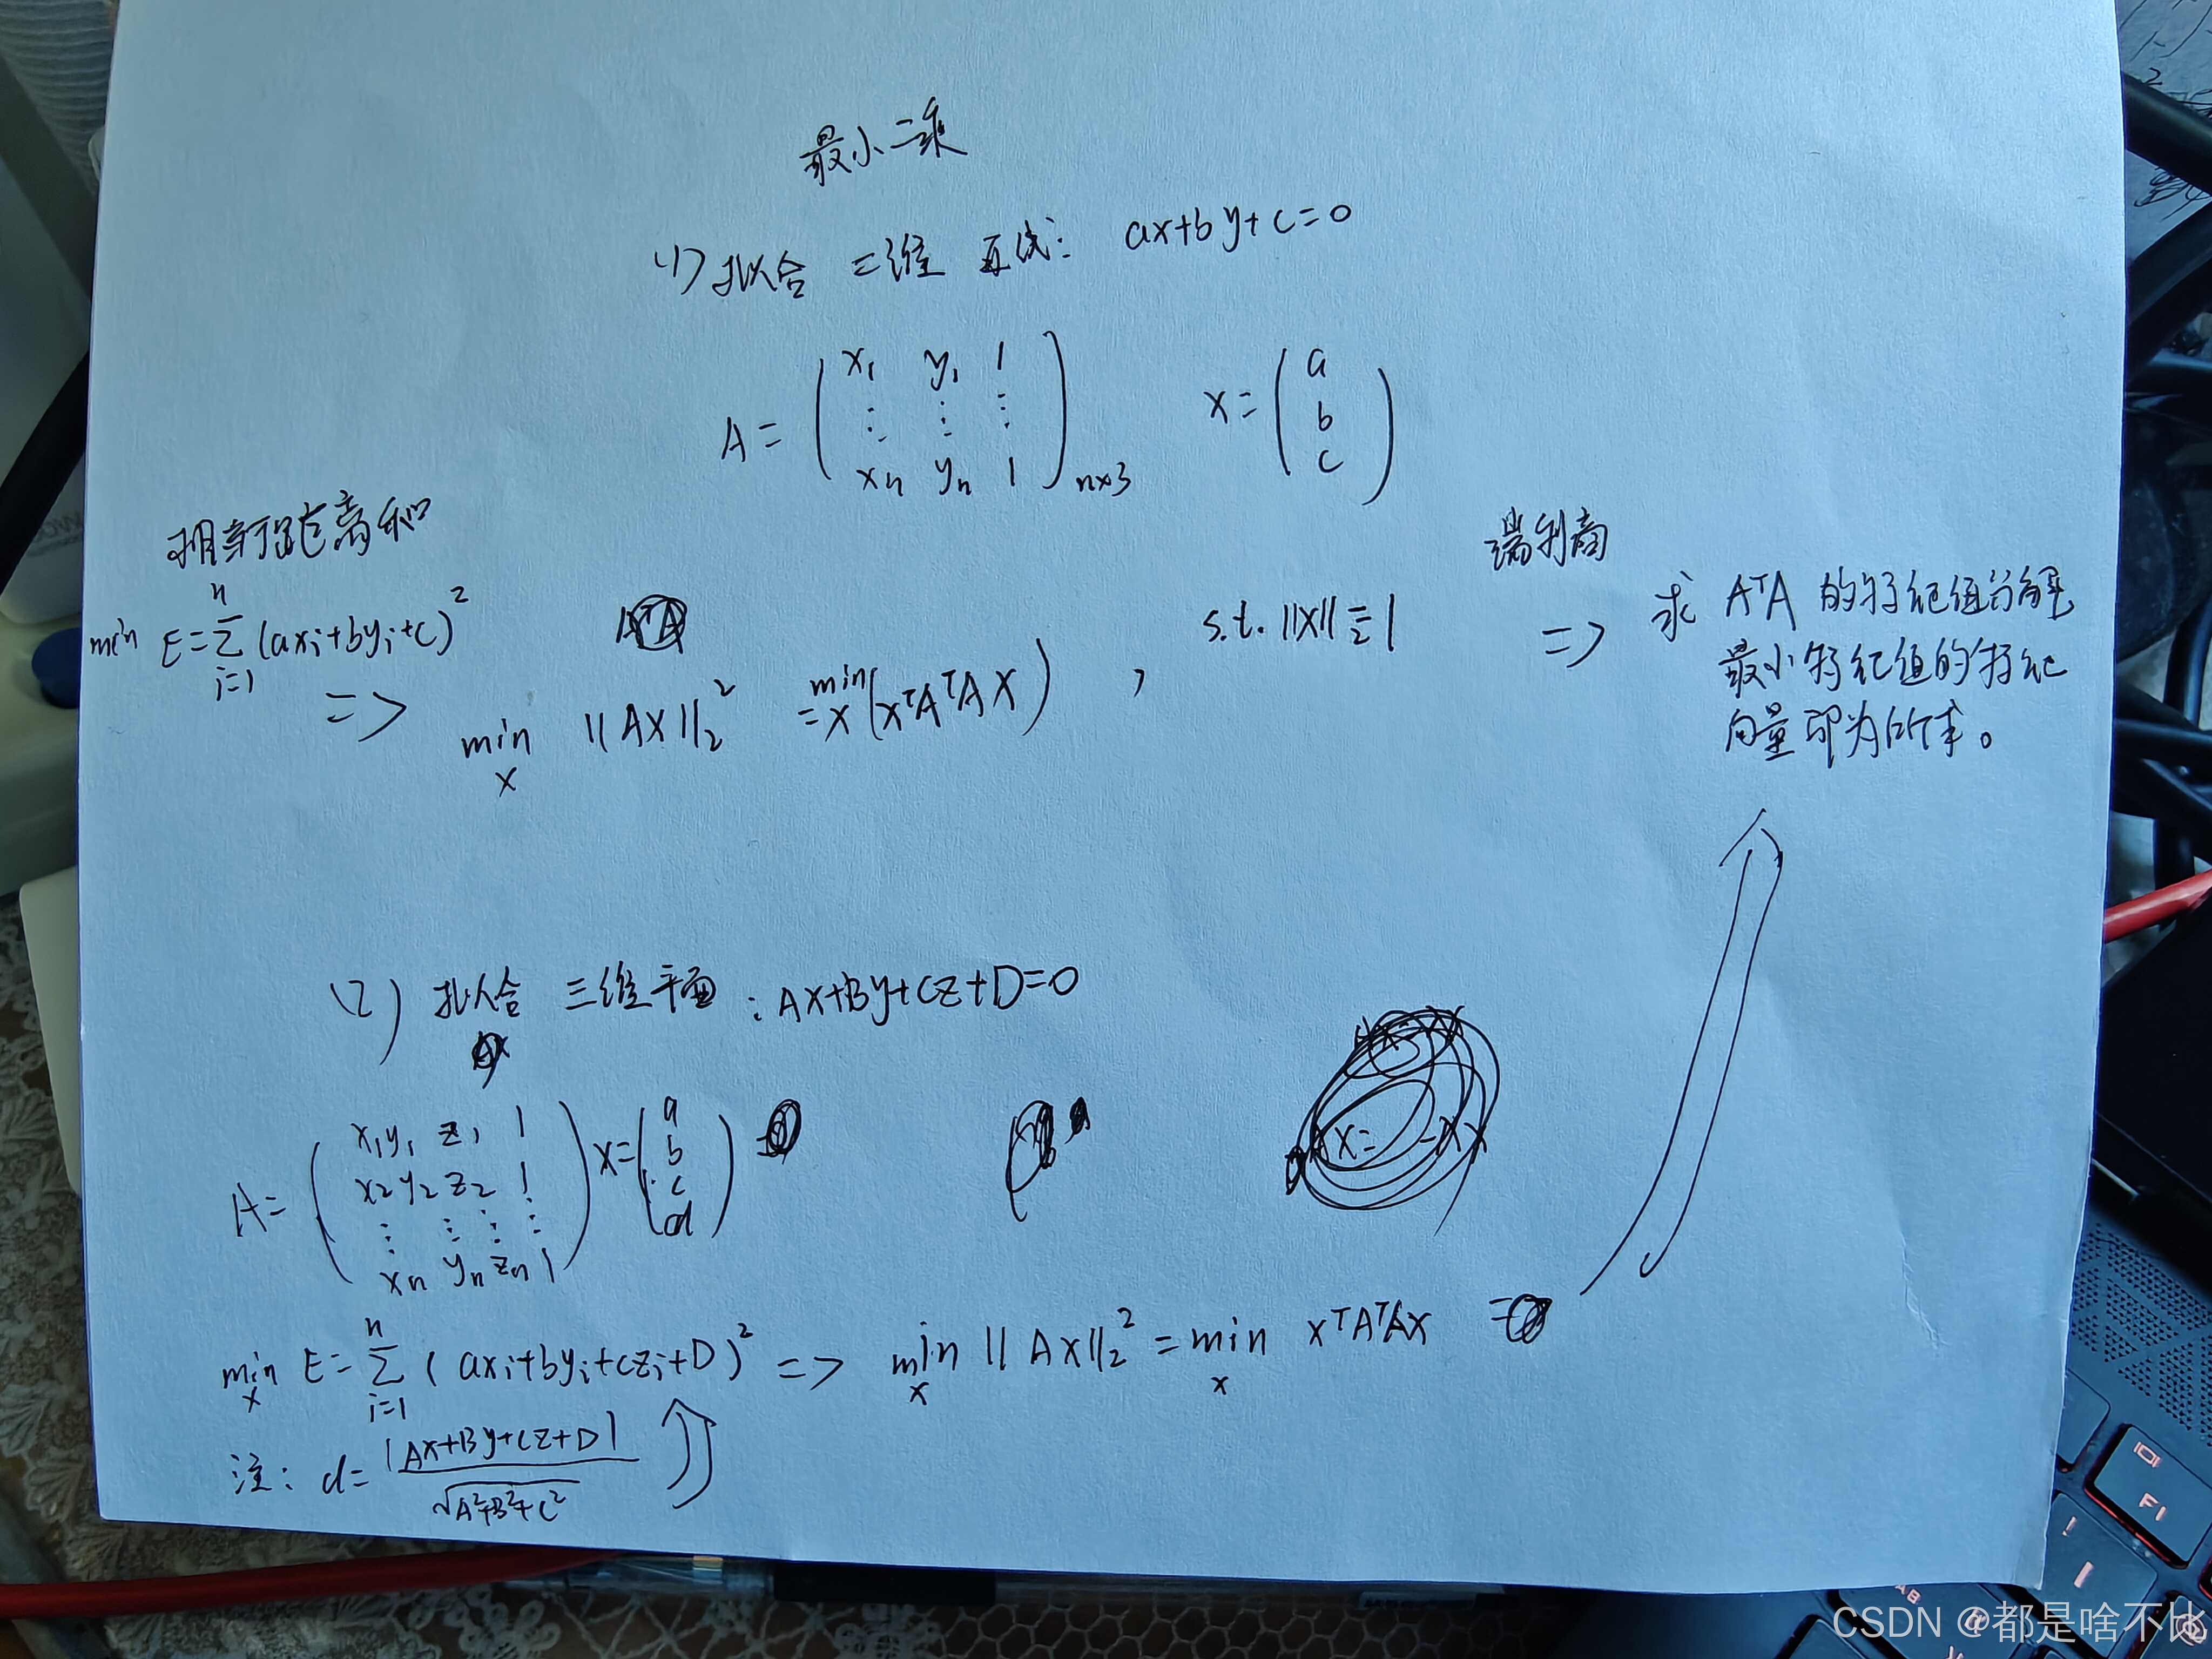 最小二乘
(1) 拟合 二维 直线: ax+by+c=0
A = ( x₁ y₁ 1 ⋮ ⋮ ⋮ xₙ yₙ 1 )ₙₓ₃ x = ( a b c )
距离和
min E = Σᵢ₌₁ⁿ (axᵢ+byᵢ+c)²
=> min_x ||AX||₂² = min_x (xᵀAᵀAX) , s.t. ||X||₂ = 1
瑞利商
=> 求 AᵀA 的特征值分解
最小特征值的特征
向量即为所求。
(2) 拟合 三维平面: AX+By+Cz+D=0
A = ( x₁ y₁ z₁ 1 x₂ y₂ z₂ 1 ⋮ ⋮ ⋮ ⋮ xₙ yₙ zₙ 1 ) x = ( a b c d )
min_x E = Σᵢ₌₁ⁿ (axᵢ+byᵢ+czᵢ+D)² => min_x ||AX||₂² = min_x xᵀAᵀAx
注: d = |AX+By+Cz+D| / √A²+B²+C²
F1
CSDN @都是啥不比